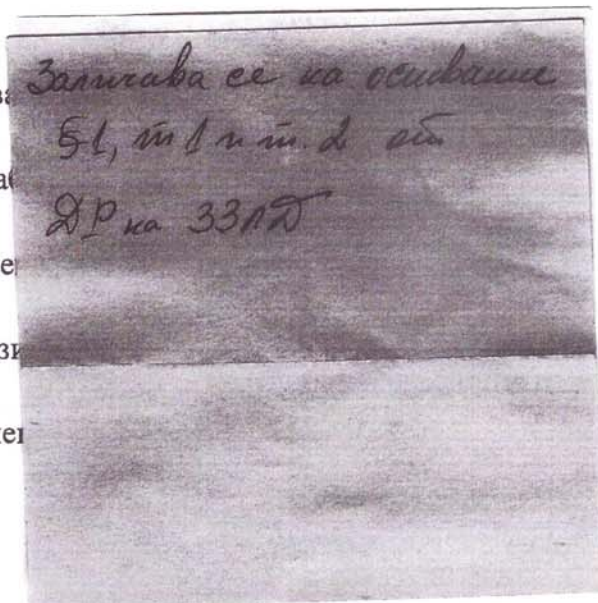 Заличава се на основание
§1, т 1 и т. 2 от
ДР на ЗЗЛД